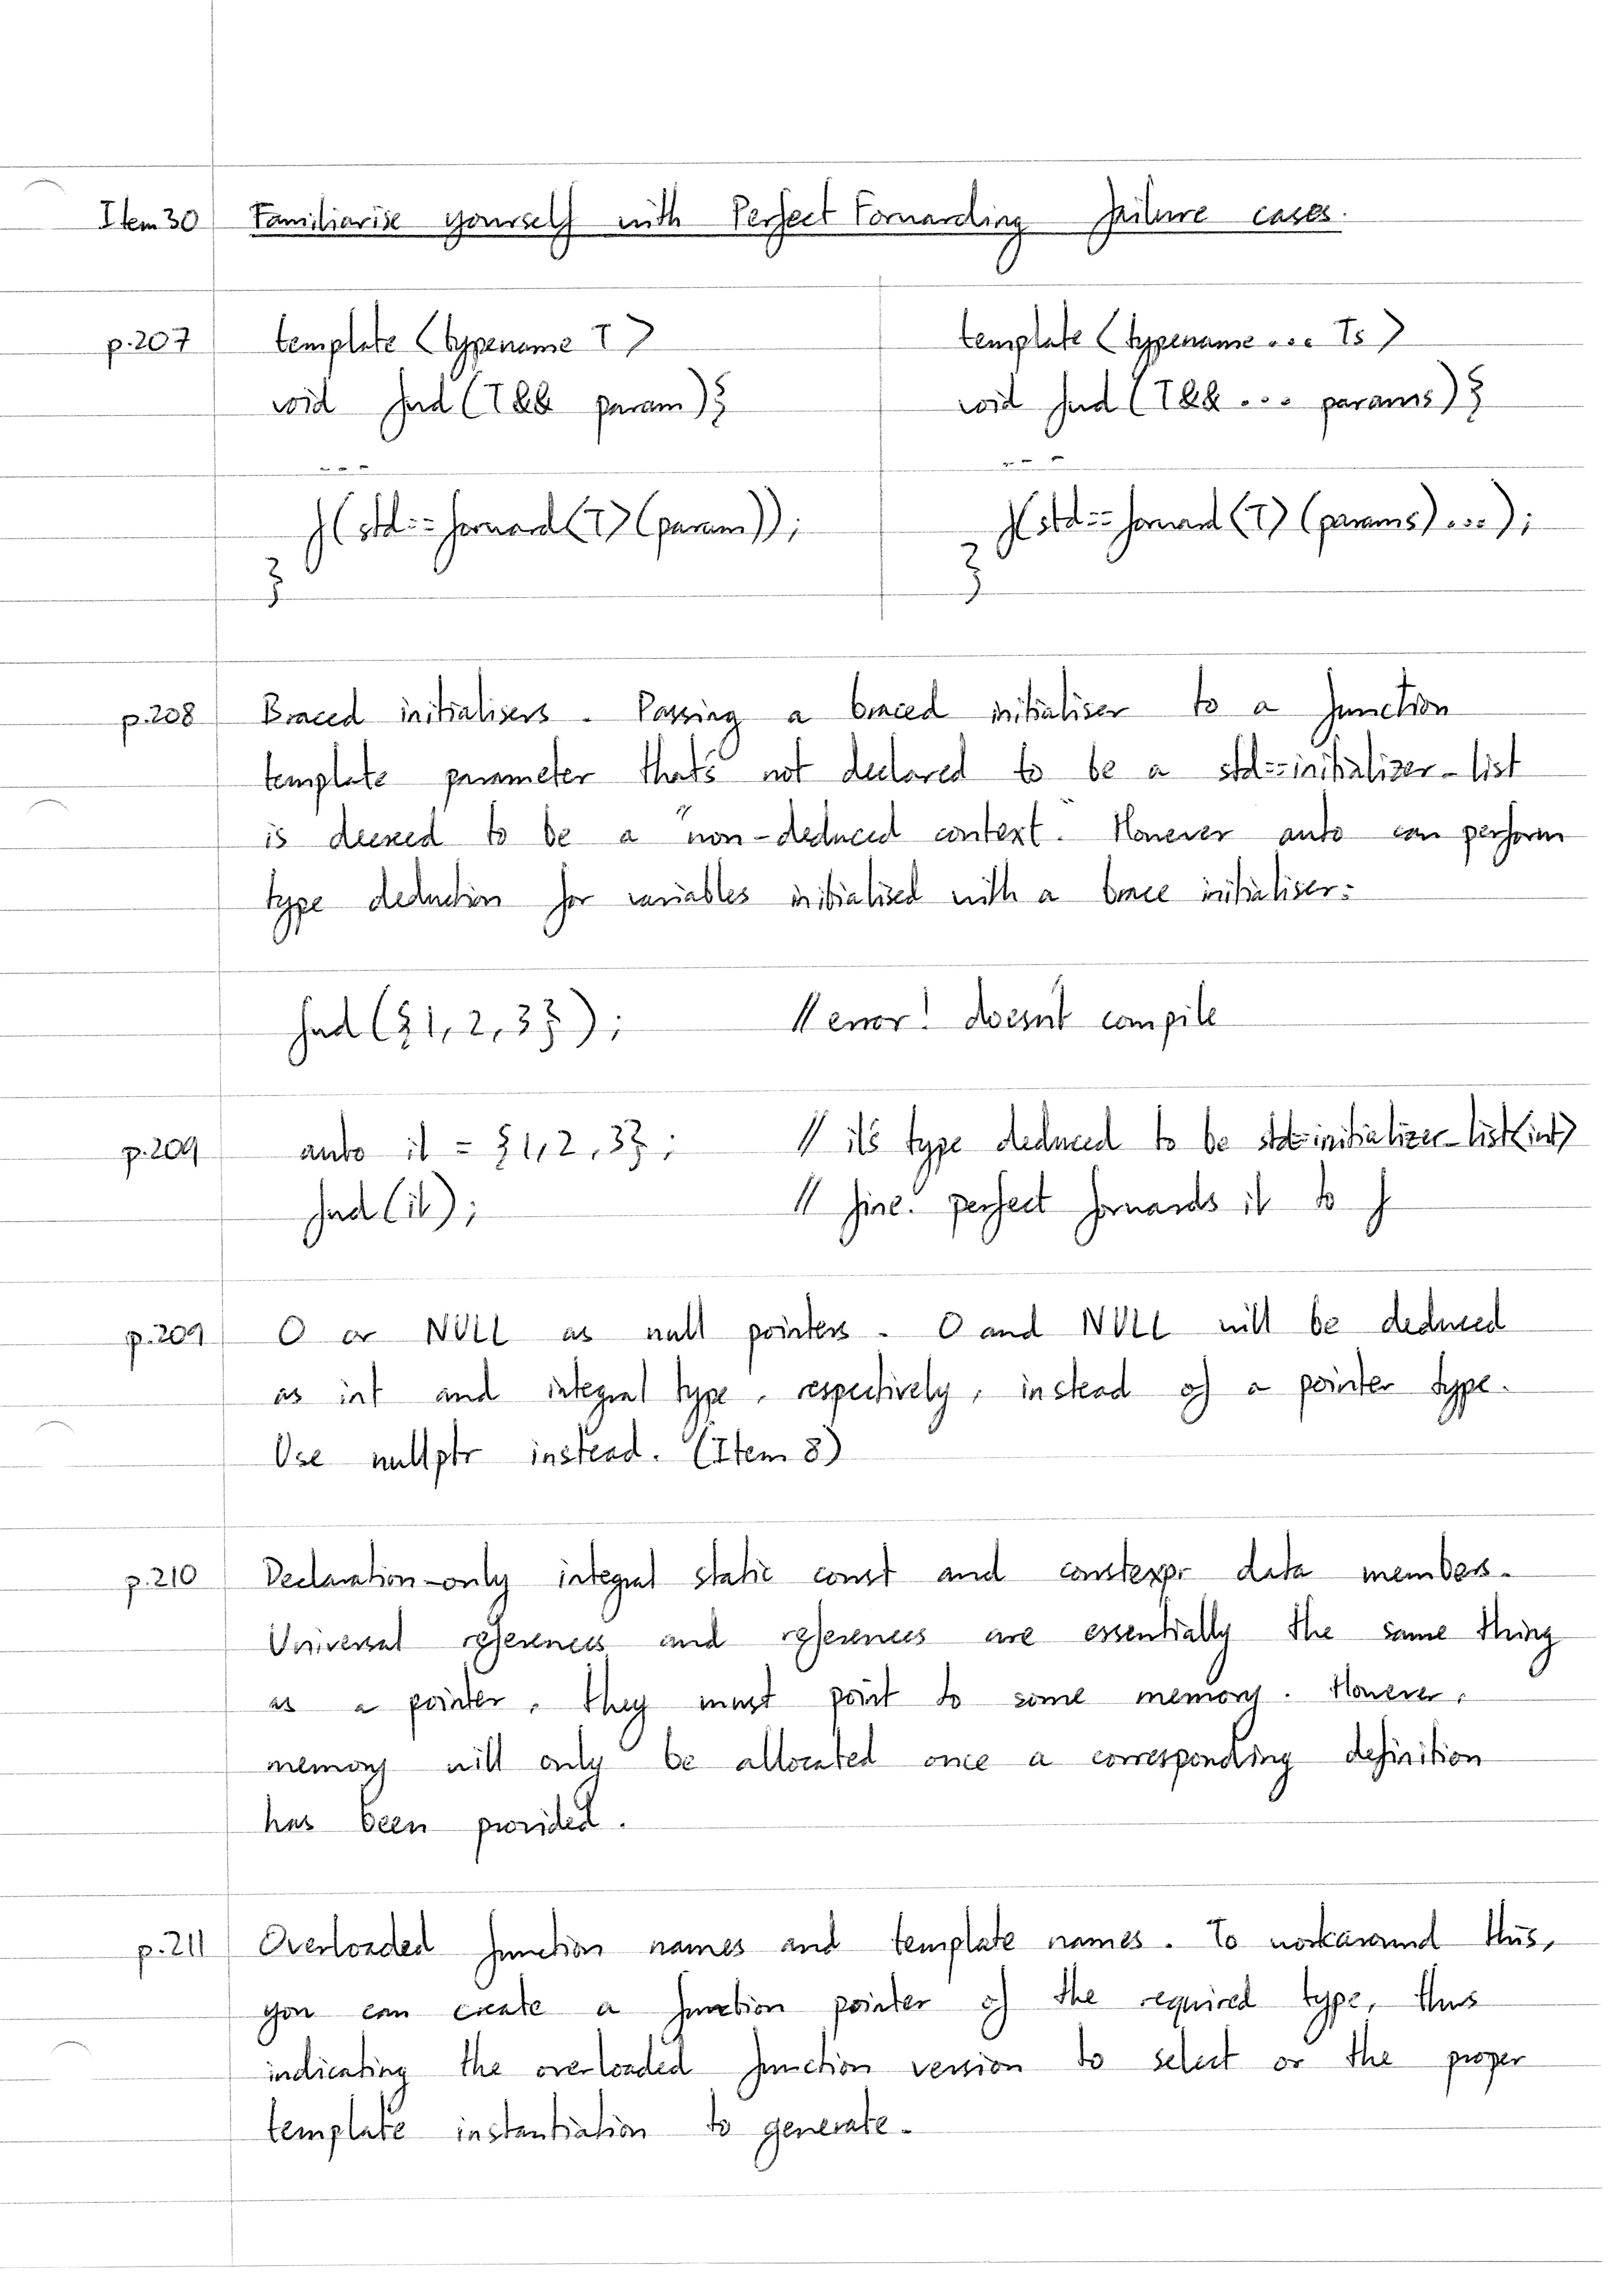 Item 30 Familiarise yourself with Perfect Forwarding failure cases.
p.207 template <typename T>
void fwd(T&& param){
---
f(std::forward<T>(param));
}
template <typename... Ts>
void fwd(T&&... params){
---
f(std::forward<T>(params)...);
}
p.208 Braced initialisers. Passing a braced initialiser to a function
template parameter that's not declared to be a std::initializer_list
is deemed to be a "non-deduced context". However auto can perform
type deduction for variables initialised with a brace initialiser:
fwd({1,2,3}); // error! doesn't compile
p.209 auto il = {1,2,3}; // il's type deduced to be std::initializer_list<int>
fwd(il); // fine! perfect forwards il to f
p.209 0 or NULL as null pointers. 0 and NULL will be deduced
as int and integral type, respectively, instead of a pointer type.
Use nullptr instead. (Item 8)
p.210 Declaration-only integral static const and constexpr data members.
Universal references and references are essentially the same thing
as a pointer, they must point to some memory. However,
memory will only be allocated once a corresponding definition
has been provided.
p.211 Overloaded function names and template names. To workaround this,
you can create a function pointer of the required type, thus
indicating the overloaded function version to select or the proper
template instantiation to generate.